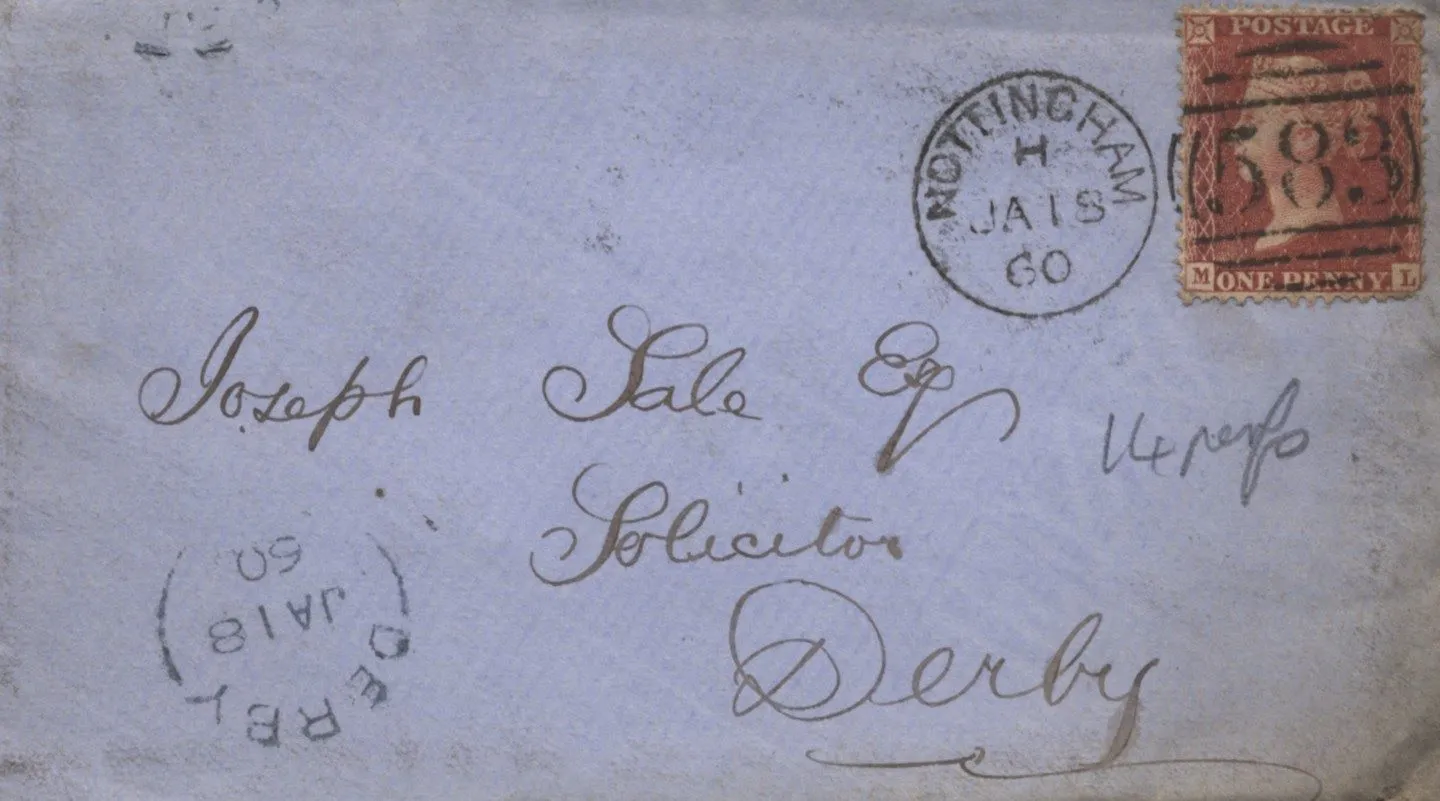 POSTAGE
583
M ONE PENNY. L
NOTTINGHAM
H
JA 18
60
Joseph Sale Esq
14 perfs
Solicitor
Derby
DERBY
JA 18
60